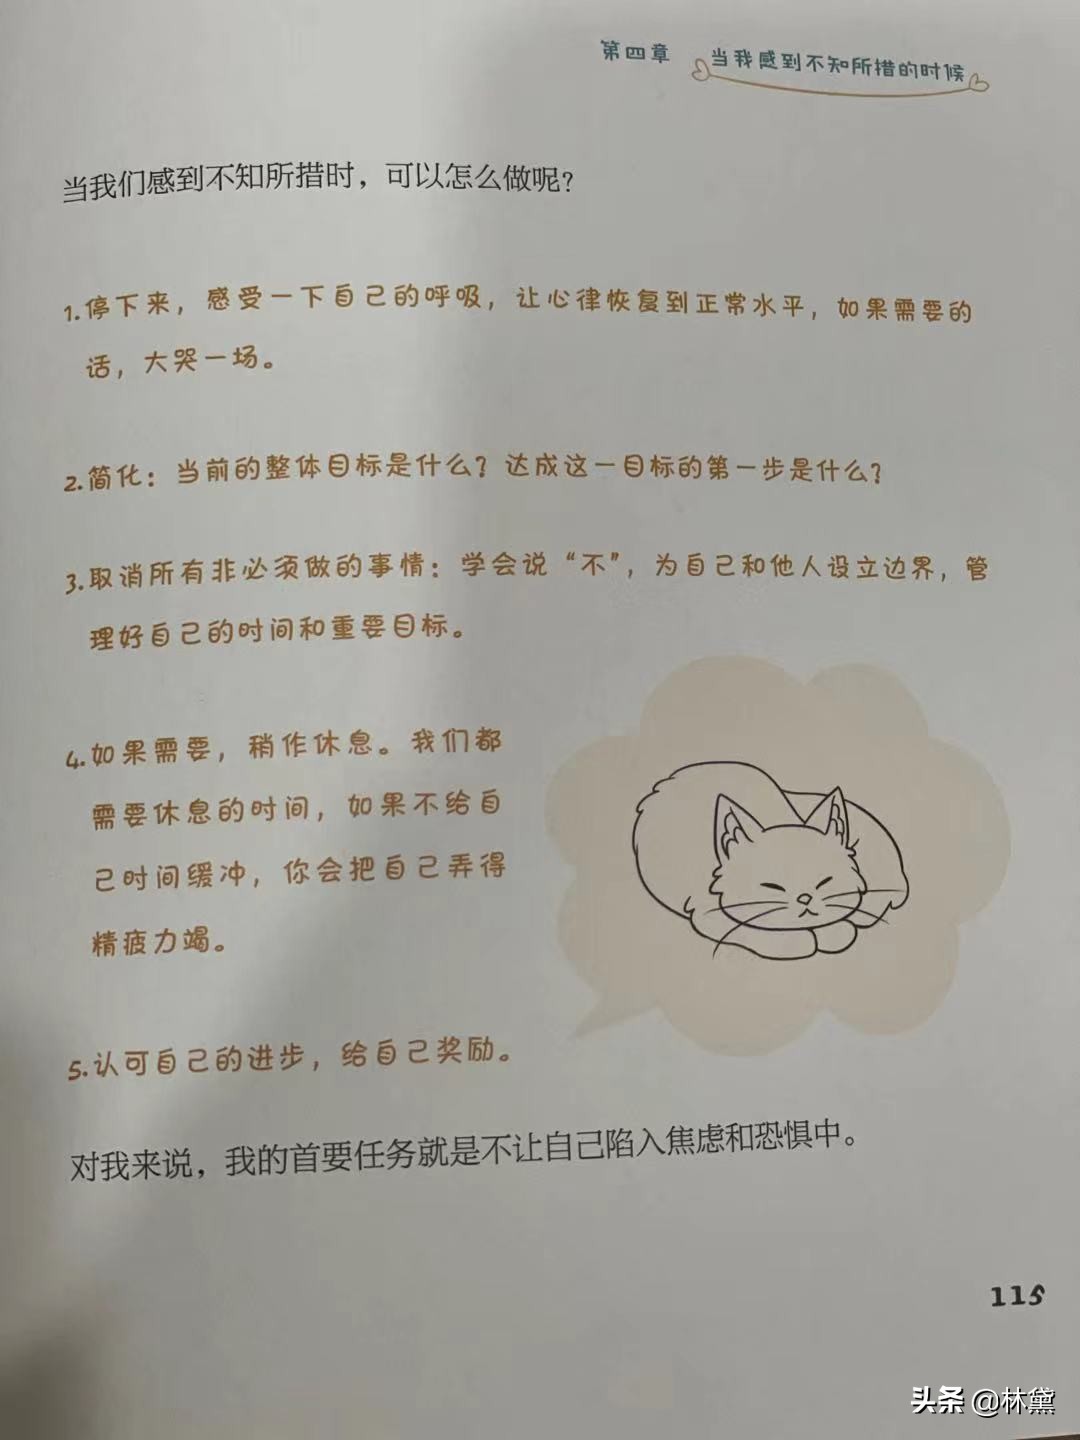 第四章 当我感到不知所措的时候
当我们感到不知所措时，可以怎么做呢？
1.停下来，感受一下自己的呼吸，让心律恢复到正常水平，如果需要的
话，大哭一场。
2.简化：当前的整体目标是什么？达成这一目标的第一步是什么？
3.取消所有非必须做的事情：学会说“不”，为自己和他人设立边界，管
理好自己的时间和重要目标。
4.如果需要，稍作休息。我们都
需要休息的时间，如果不给自
己时间缓冲，你会把自己弄得
精疲力竭。
5.认可自己的进步，给自己奖励。
对我来说，我的首要任务就是不让自己陷入焦虑和恐惧中。
115
头条 @林黛